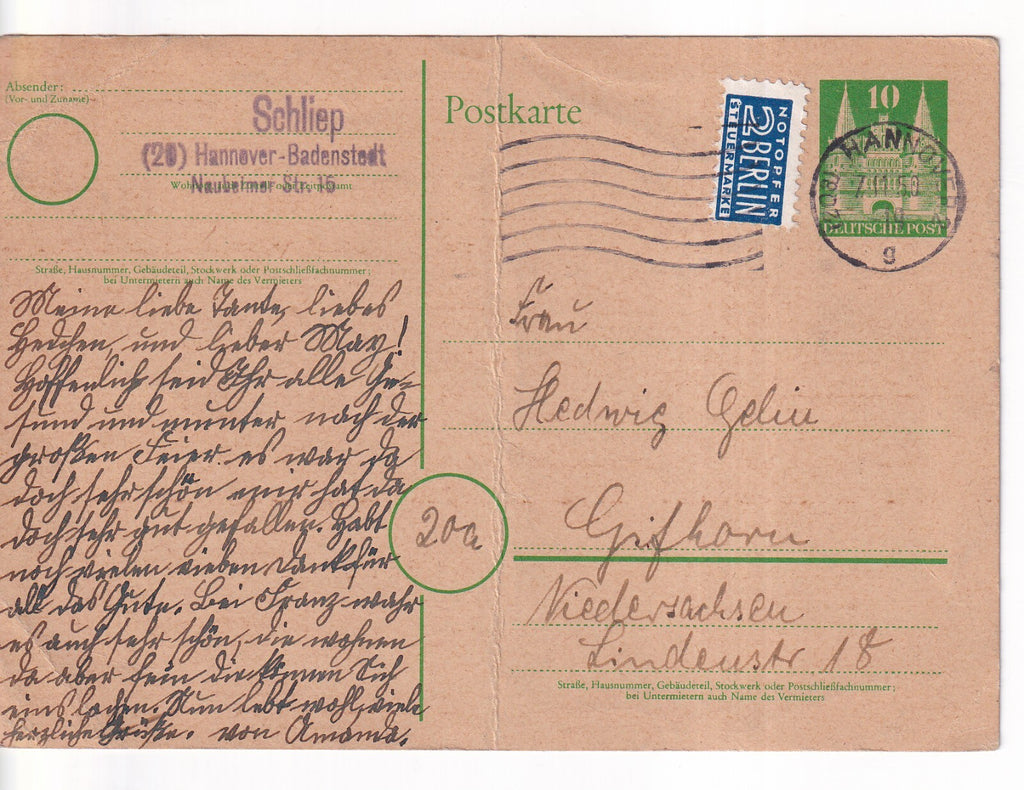 Absender:
(Vor- und Zuname)
Schliep
(20) Hannover-Badenstedt
Nauheimer Str. 16
Straße, Hausnummer, Gebäudeteil, Stockwerk oder Postschließfachnummer;
bei Untermietern auch Name des Vermieters
Meine liebe Tante, liebes
Hedchen, und lieber May!
Hoffentlich seid Ihr alle Ge-
sund und munter, nach der
großen Feier. es war ja
doch sehr schön, mir hat da
doch sehr gut gefallen. Habt
noch vielen lieben Dank für
all das Gute. Bei Franz wahr
es auch sehr schön, die wohnen
da aber fein die können Sich
eins lachen. Nun lebt wohl, viele
herzliche Grüße. von Amanda.
Postkarte
NOTOPFER
2 BERLIN
STEUERMARKE
10
DEUTSCHE POST
HANNOVER
7.11.50
g
Frau
Hedwig
Gifhorn
20a
Niedersachsen
Lindenstr 18
Straße, Hausnummer, Gebäudeteil, Stockwerk oder Postschließfachnummer;
bei Untermietern auch Name des Vermieters